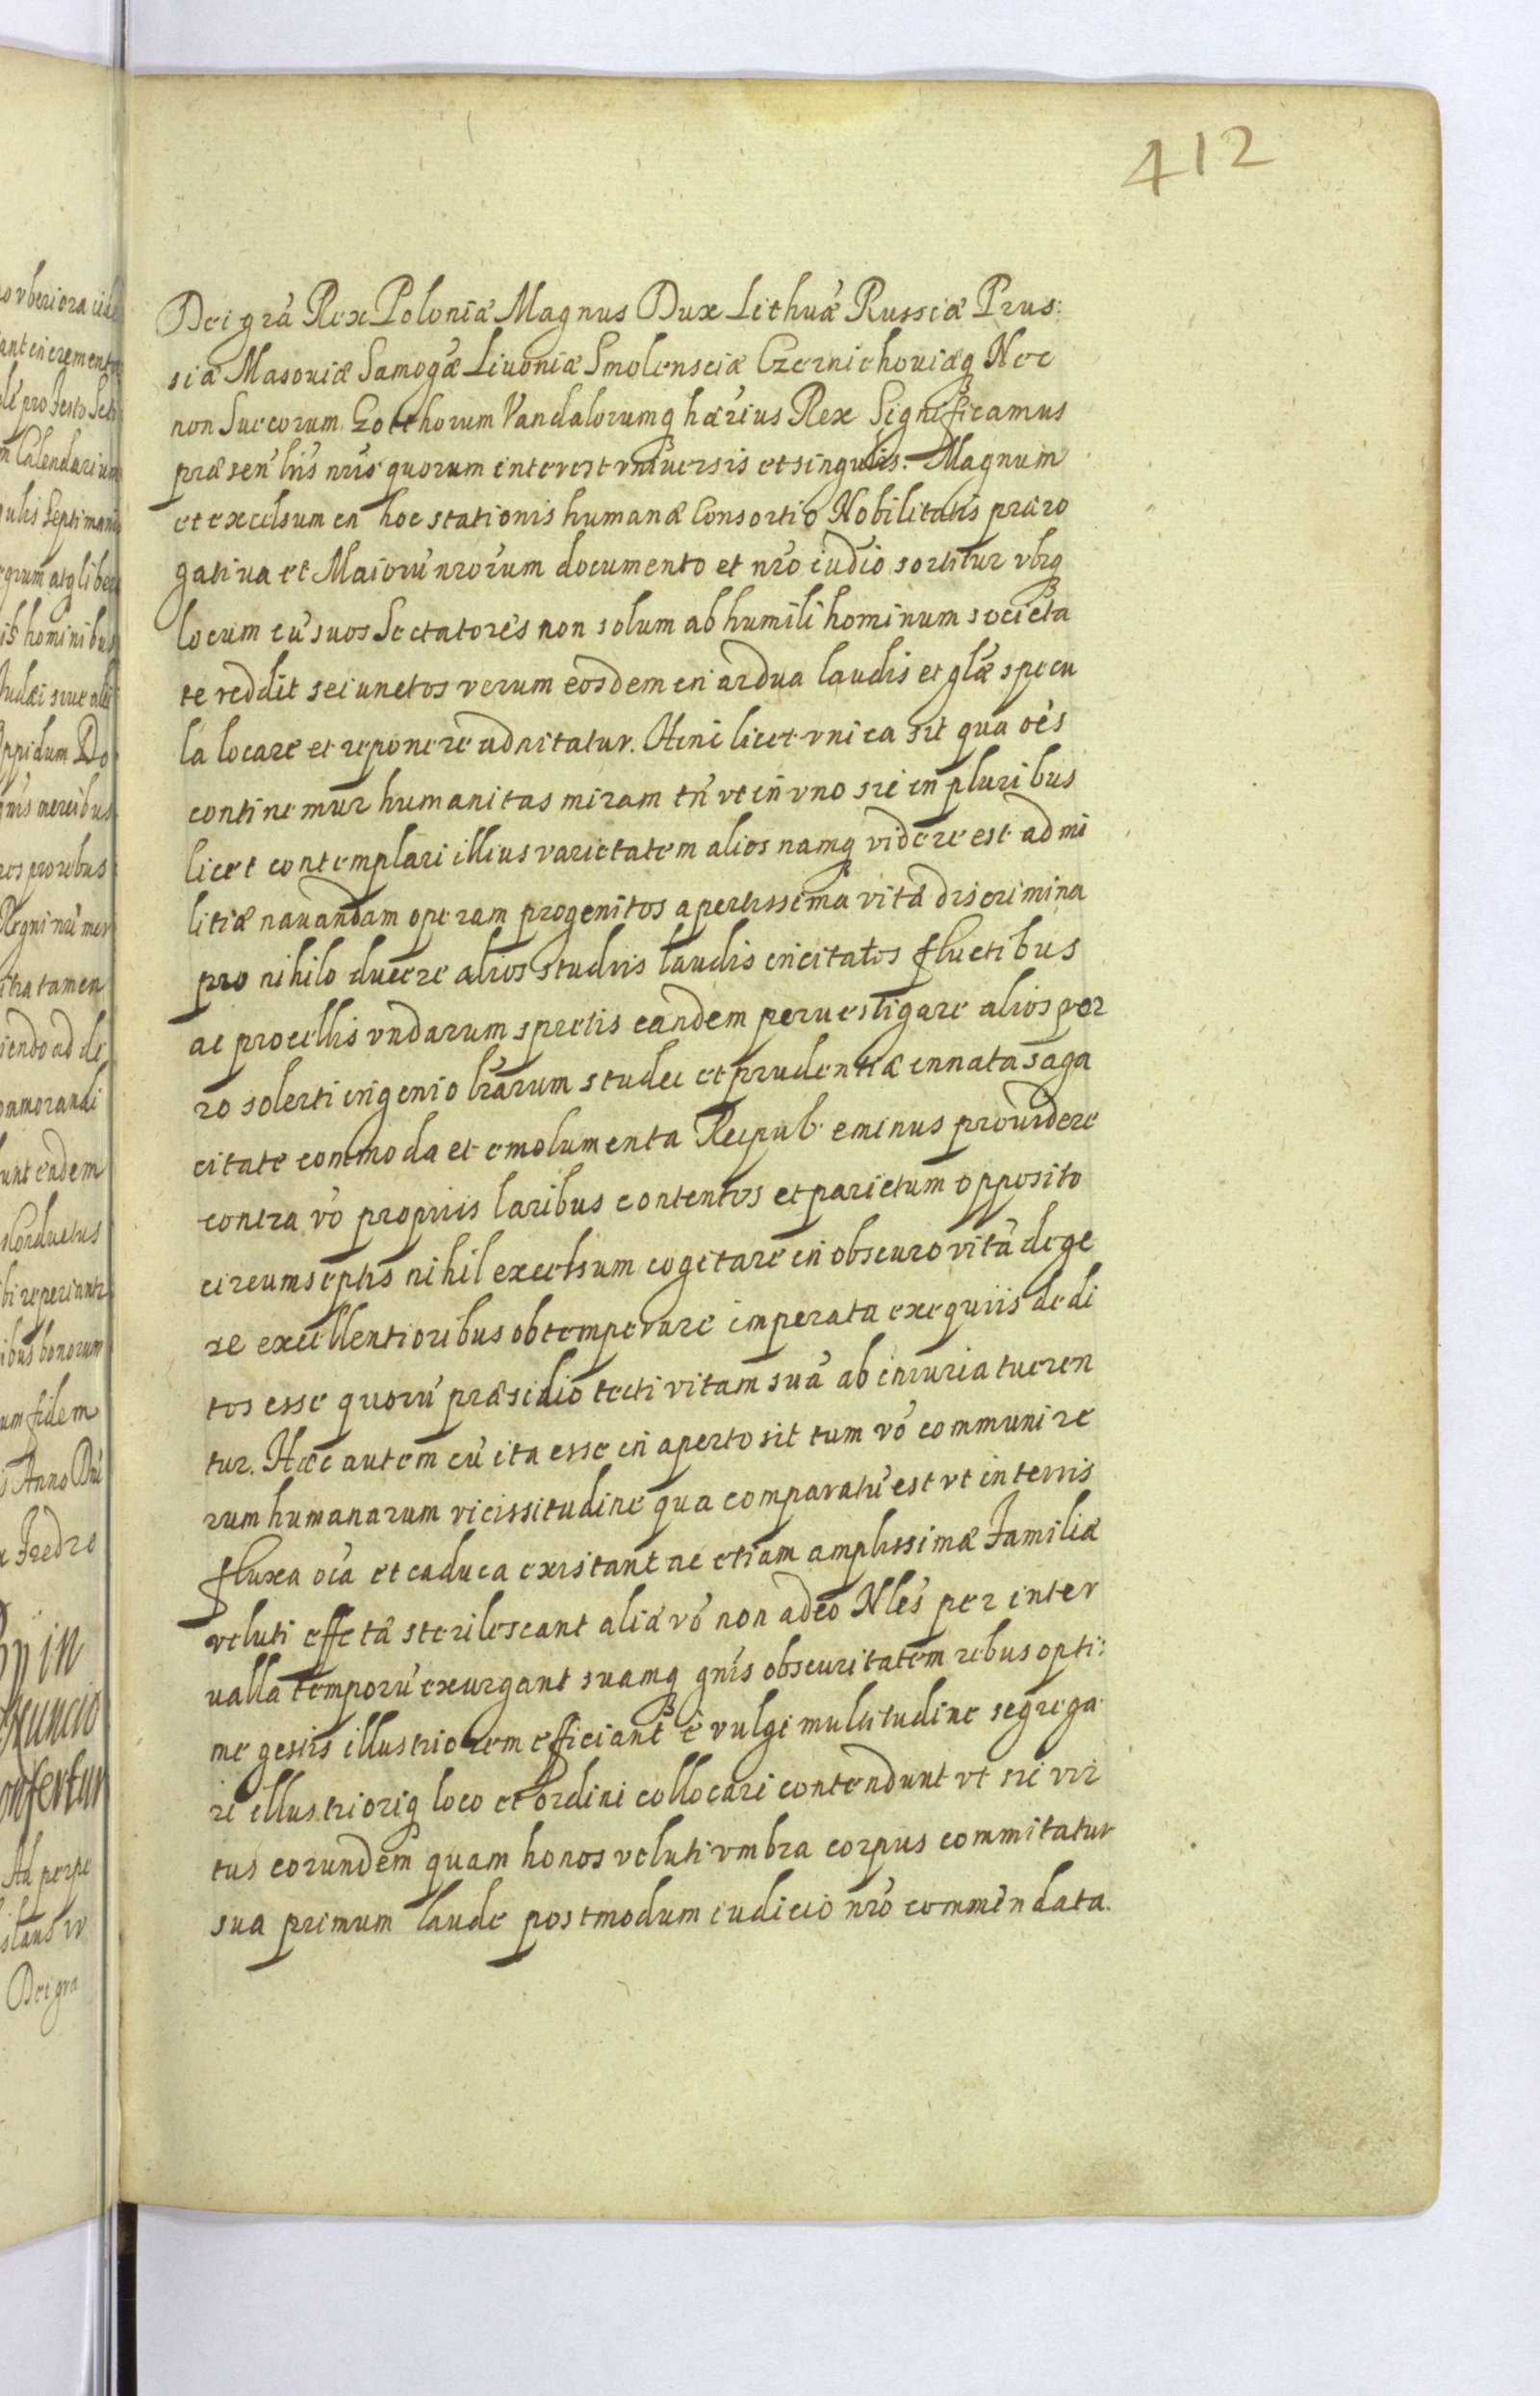 412
Dei grã Rex Poloniæ Magnus Dux Lithuæ Russiæ Prus:
siæ Masouiæ Samogæ Liuoniæ Smolensciæ Czernichouiæq Nec
non Suecorum Gotthorum Vandalorumq hæríus Rex Significamus
præsen lris nris quorum interest vniuersis et singulis. Magnum
et excelsum in hoc stationis humanæ Consortio Nobilitatis præro
gatiua et Maiorũ nrorum documento et nro iudio sortitur vbiq
locum cũ suos Sectatores non solum ab humili hominum societa
te reddit seiunctos verum eosdem in ardua laudis et glæ specu
la locare et reponere adnitatur. Hinc licet vnica sit qua oes
continemur humanitas miram tñ vt in vno sic in pluribus
licet contemplari illius varietatem alios namq videre est ad mi
litiæ nauandam operam progenitos apertissima vitæ discrimina
pro nihilo ducere alios studiis laudis incitatos fluctibus
ac procellis vndarum spretis eandem peruestigare alios por
ro solerti ingenio lrarum studei et prudentiæ innata saga
citate commoda et emolumenta Reipub eminus prouidere
contra vo propriis laribus contentos et parietum opposito
circumseptis nihil excelsum cogitare in obscuro vitã dege
re excellentioribus obtemperare imperata exequiis dedi
tos esse quorũ præsidio tecti vitam suã ab iniuria tueren
tur. Hæc autem cũ ita esse in aperto sit tum vo communi re
rum humanarum vicissitudine qua comparatũ est vt in terris
fluxa oia et caduca existant ac etiam amplissimæ Familiæ
veluti effetæ sterilescant aliæ vo non adeo Nles per inter
ualla temporũ exurgant suamq gnis obscuritatem rebus opti:
me gestis illustriorem efficiant è vulgi multitudine segrega
ri illustriorig loco et ordini collocari contendunt vt sic vir
tus eorundem quam honos veluti vmbra corpus commitatur
sua primum laude postmodum iudicio nro commendata.